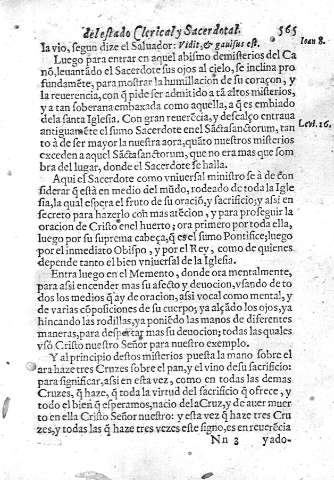 del estado Clerical y Sacerdotal. 565
la vio, segun dize el Salvador: Vidit, & gavisus est. Ioan 8.
Luego para entrar en aquel abismo de misterios del Ca
nõ, levantãdo el Sacerdote sus ojos al cielo, se inclina pro
fundamẽte, para mostrar la humillacion de su coraçon, y
la reverencia, con q̃ pide ser admitido a tã altos misterios,
y a tan soberana embaxada como aquella, a q̃ es embiado
de la santa Iglesia. Con gran reverẽcia, y descalço entraua
antiguamẽte el sumo Sacerdote en el Sãcta sanctorum, tan Levi. 16.
to à de ser mayor la nuestra aora, quãto nuestros misterios
exceden a aquel Sãcta sanctorum, que no era mas que som
bra del lugar, donde el Sacerdote se halla.
Aqui el Sacerdote como vniuersal ministro se à de con
siderar q̃ està en medio del mũdo, rodeado de toda la Igle
sia, la qual espera el fruto de su oraciõ, y sacrificio; y assi en
secreto para hazerlo con mas atẽcion, y para proseguir la
oracion de Cristo en el huerto; ora primero por toda ella,
luego por su suprema cabeça, q̃ es el sumo Pontifice; luego
por el inmediato Obispo, y por el Rey, como de quienes
depende tanto el bien vniuersal de la Iglesia.
Entra luego en el Memento, donde ora mentalmente,
para assi encender mas su afecto y deuocion, vsando de to
dos los medios q̃ ay de oracion, assi vocal como mental, y
de varias cõposiciones de su cuerpo, ya alçãdo los ojos, ya
hincando las rodillas, ya poniẽdo las manos de diferentes
maneras, para despertar mas su deuocion; todas las quales
vsò Cristo nuestro Señor para nuestro exemplo.
Y al principio destos misterios puesta la mano sobre el
ara haze tres Cruzes sobre el pan, y el vino de su sacrificio:
para significar, assi en esta vez, como en todas las demas
Cruzes, q̃ haze, q̃ toda la virtud del sacrificio q̃ ofrece, y
todo el bien q̃ esperamos, nacio de la Cruz, y de auer muer
to en ella Cristo Señor nuestro: y esta vez q̃ haze tres Cru
zes, y todas las q̃ haze tres vezes este signo, es en reuerẽcia
Nn 3 y ado-